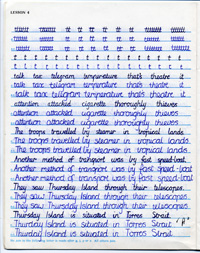 LESSON 4
tttttt tttttt tt tt tt tttttttt ttttttt
tttttt tttttt tt tt tt tttttttt ttttttt
tttttt tttttt tt tt tt tttttttt ttttttt
t t t t t t t t t t t t
t t t t t t t t t t t t
talk taxi telegram temperature that's theatre it
talk taxi telegram temperature that's theatre it
talk taxi telegram temperature that's theatre it
attention attacked cigarette thoroughly thieves
attention attacked cigarette thoroughly thieves
attention attacked cigarette thoroughly thieves
The troops travelled by steamer in tropical lands
The troops travelled by steamer in tropical lands
The troops travelled by steamer in tropical lands
Another method of transport was by fast speed-boat.
Another method of transport was by fast speed-boat.
Another method of transport was by fast speed-boat.
They saw Thursday Island through their telescopes.
They saw Thursday Island through their telescopes.
They saw Thursday Island through their telescopes.
Thursday Island is situated in Torres Strait
Thursday Island is situated in Torres Strait "A"
Thursday Island is situated in Torres Strait